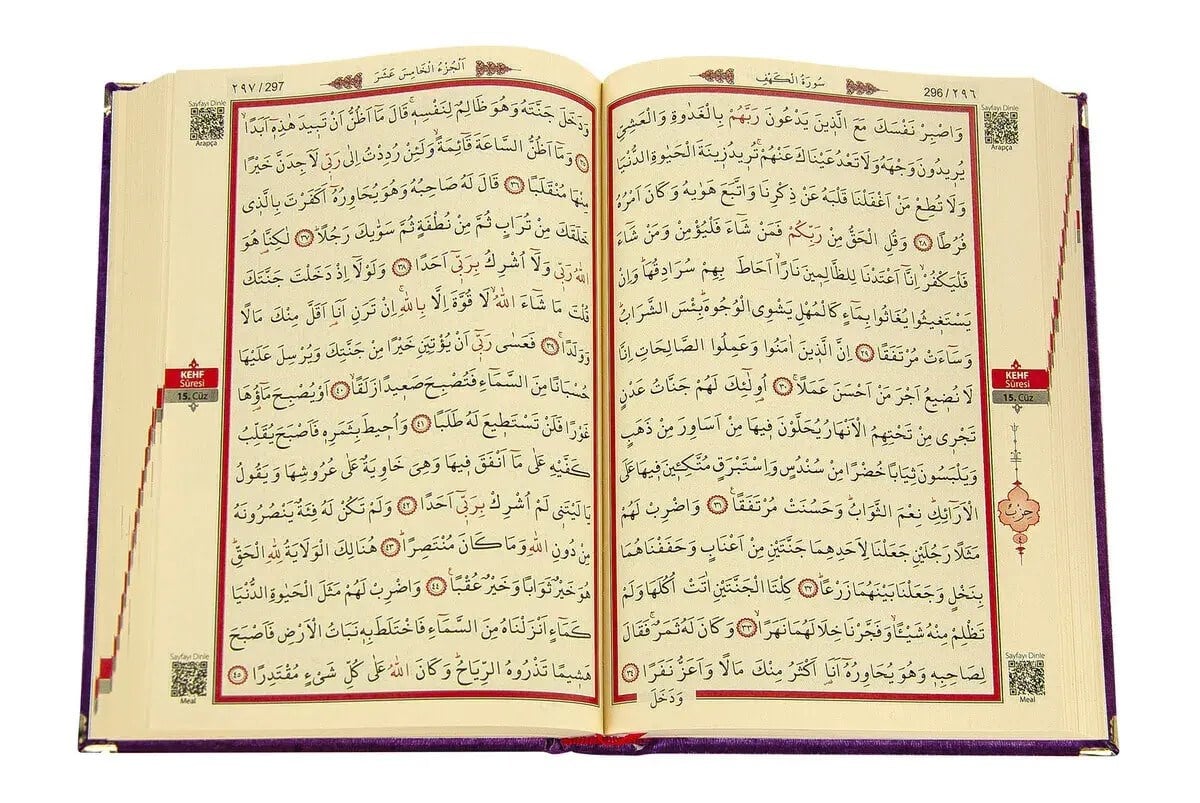 سُورَةُ الْكَهْفِ
296 / ٢٩٦
Sayfayı Dinle
Arapça
وَاصْبِرْ نَفْسَكَ مَعَ الَّذ۪ينَ يَدْعُونَ رَبَّهُمْ بِالْغَدٰوةِ وَالْعَشِيِّ
يُر۪يدُونَ وَجْهَهُ وَلَا تَعْدُ عَيْنَاكَ عَنْهُمْۚ تُر۪يدُ ز۪ينَةَ الْحَيٰوةِ الدُّنْيَاۚ
وَلَا تُطِعْ مَنْ اَغْفَلْنَا قَلْبَهُ عَنْ ذِكْرِنَا وَاتَّبَعَ هَوٰيهُ وَكَانَ اَمْرُهُ
فُرُطًا ﴿٢٨﴾ وَقُلِ الْحَقُّ مِنْ رَبِّكُمْ فَمَنْ شَٓاءَ فَلْيُؤْمِنْ وَمَنْ شَٓاءَ
فَلْيَكْفُرْۙ اِنَّٓا اَعْتَدْنَا لِلظَّالِم۪ينَ نَارًاۙ اَحَاطَ بِهِمْ سُرَادِقُهَاۜ وَاِنْ
يَسْتَغ۪يثُوا يُغَاثُوا بِمَٓاءٍ كَالْمُهْلِ يَشْوِي الْوُجُوهَۜ بِئْسَ الشَّرَابُۜ
وَسَٓاءَتْ مُرْتَفَقًا ﴿٢٩﴾ اِنَّ الَّذ۪ينَ اٰمَنُوا وَعَمِلُوا الصَّالِحَاتِ اِنَّا
لَا نُض۪يعُ اَجْرَ مَنْ اَحْسَنَ عَمَلًاۚ ﴿٣٠﴾ اُو۬لٰٓئِكَ لَهُمْ جَنَّاتُ عَدْنٍ
تَجْر۪ي مِنْ تَحْتِهِمُ الْاَنْهَارُ يُحَلَّوْنَ ف۪يهَا مِنْ اَسَاوِرَ مِنْ ذَهَبٍ
وَيَلْبَسُونَ ثِيَابًا خُضْرًا مِنْ سُنْدُسٍ وَاِسْتَبْرَقٍ مُتَّكِـ۪ٔينَ ف۪يهَا عَلَى
الْاَرَٓائِكِۜ نِعْمَ الثَّوَابُۜ وَحَسُنَتْ مُرْتَفَقًا۟ ﴿٣١﴾ وَاضْرِبْ لَهُمْ
مَثَلًا رَجُلَيْنِ جَعَلْنَا لِاَحَدِهِمَا جَنَّتَيْنِ مِنْ اَعْنَابٍ وَحَفَفْنَاهُمَا
بِنَخْلٍ وَجَعَلْنَا بَيْنَهُمَا زَرْعًاۜ ﴿٣٢﴾ كِلْتَا الْجَنَّتَيْنِ اٰتَتْ اُكُلَهَا وَلَمْ
تَظْلِمْ مِنْهُ شَيْـًٔاۙ وَفَجَّرْنَا خِلَالَهُمَا نَهَرًاۙ ﴿٣٣﴾ وَكَانَ لَهُ ثَمَرٌۚ فَقَالَ
لِصَاحِبِه۪ وَهُوَ يُحَاوِرُهُٓ اَنَا۬ اَكْثَرُ مِنْكَ مَالًا وَاَعَزُّ نَفَرًا ﴿٣٤﴾
وَدَخَلَ
KEHF
Sûresi
15. Cüz
حزب
٤
Sayfayı Dinle
Meal
٢٩٧ / 297
اَلْجُزْءُ الْخَامِسَ عَشَرَ
Sayfayı Dinle
Arapça
وَدَخَلَ جَنَّتَهُ وَهُوَ ظَالِمٌ لِنَفْسِه۪ۚ قَالَ مَٓا اَظُنُّ اَنْ تَب۪يدَ هٰذِه۪ٓ اَبَدًاۙ
﴿٣٥﴾ وَمَٓا اَظُنُّ السَّاعَةَ قَٓائِمَةًۙ وَلَئِنْ رُدِدْتُ اِلٰى رَبّ۪ي لَاَجِدَنَّ خَيْرًا
مِنْهَا مُنْقَلَبًا ﴿٣٦﴾ قَالَ لَهُ صَاحِبُهُ وَهُوَ يُحَاوِرُهُٓ اَكَفَرْتَ بِالَّذ۪ي
خَلَقَكَ مِنْ تُرَابٍ ثُمَّ مِنْ نُطْفَةٍ ثُمَّ سَوّٰيكَ رَجُلًاۜ ﴿٣٧﴾ لٰكِنَّا۬ هُوَ
اللّٰهُ رَبّ۪ي وَلَٓا اُشْرِكُ بِرَبّ۪ٓي اَحَدًا ﴿٣٨﴾ وَلَوْلَٓا اِذْ دَخَلْتَ جَنَّتَكَ
قُلْتَ مَا شَٓاءَ اللّٰهُۙ لَا قُوَّةَ اِلَّا بِاللّٰهِۚ اِنْ تَرَنِ اَنَا۬ اَقَلَّ مِنْكَ مَالًا
وَوَلَدًاۚ ﴿٣٩﴾ فَعَسٰى رَبّ۪ٓي اَنْ يُؤْتِيَنِ خَيْرًا مِنْ جَنَّتِكَ وَيُرْسِلَ عَلَيْهَا
حُسْبَانًا مِنَ السَّمَٓاءِ فَتُصْبِحَ صَع۪يدًا زَلَقًاۙ ﴿٤٠﴾ اَوْ يُصْبِحَ مَٓاؤُ۬هَا
غَوْرًا فَلَنْ تَسْتَط۪يعَ لَهُ طَلَبًا ﴿٤١﴾ وَاُح۪يطَ بِثَمَرِه۪ فَاَصْبَحَ يُقَلِّبُ
كَفَّيْهِ عَلٰى مَٓا اَنْفَقَ ف۪يهَا وَهِيَ خَاوِيَةٌ عَلٰى عُرُوشِهَا وَيَقُولُ
يَا لَيْتَن۪ي لَمْ اُشْرِكْ بِرَبّ۪ٓي اَحَدًا ﴿٤٢﴾ وَلَمْ تَكُنْ لَهُ فِئَةٌ يَنْصُرُونَهُ
مِنْ دُونِ اللّٰهِ وَمَا كَانَ مُنْتَصِرًاۜ ﴿٤٣﴾ هُنَالِكَ الْوَلَايَةُ لِلّٰهِ الْحَقِّۜ
هُوَ خَيْرٌ ثَوَابًا وَخَيْرٌ عُقْبًا۟ ﴿٤٤﴾ وَاضْرِبْ لَهُمْ مَثَلَ الْحَيٰوةِ الدُّنْيَا
كَمَٓاءٍ اَنْزَلْنَاهُ مِنَ السَّمَٓاءِ فَاخْتَلَطَ بِه۪ نَبَاتُ الْاَرْضِ فَاَصْبَحَ
هَش۪يمًا تَذْرُوهُ الرِّيَاحُۜ وَكَانَ اللّٰهُ عَلٰى كُلِّ شَيْءٍ مُقْتَدِرًا ﴿٤٥﴾
KEHF
Sûresi
15. Cüz
Sayfayı Dinle
Meal